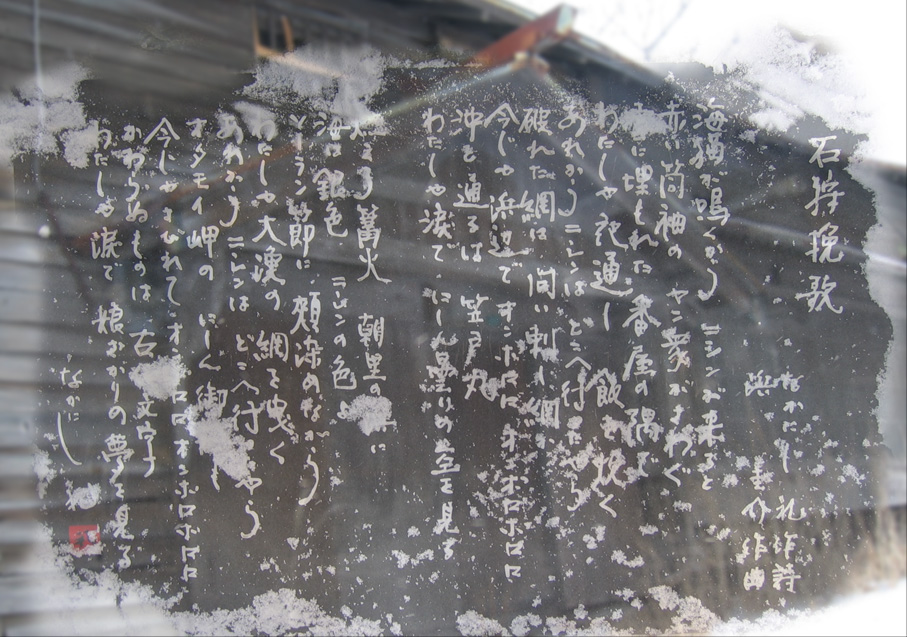 石狩挽歌
なかにし礼作詩
浜 圭介作曲
海猫が鳴くから ニシンが来ると
赤い筒袖の ヤン衆がさわぐ
に埋もれた 番屋の隅で
わたしゃ夜通し 飯を炊く
あれからニシンは どこへ行ったやら
破れた網は 問い刺し網か
今じゃ浜辺で オンボロロ オンボロボロロ
沖を通るは 笠戸丸
わたしゃ涙で にしん曇りの空を見る
燃える篝火 朝里の に
海は銀色 ニシンの色
ソーラン節に 頬染めながら
わたしゃ大漁の 網を曳く
あれからニシンは どこへ行ったやら
オタモイ岬の にしん御
今じゃさびれて オンボロロ オンボロボロロ
かわらぬものは 古 文字
わたしゃ涙で 娘ざかりの夢を見る
なかにし 礼